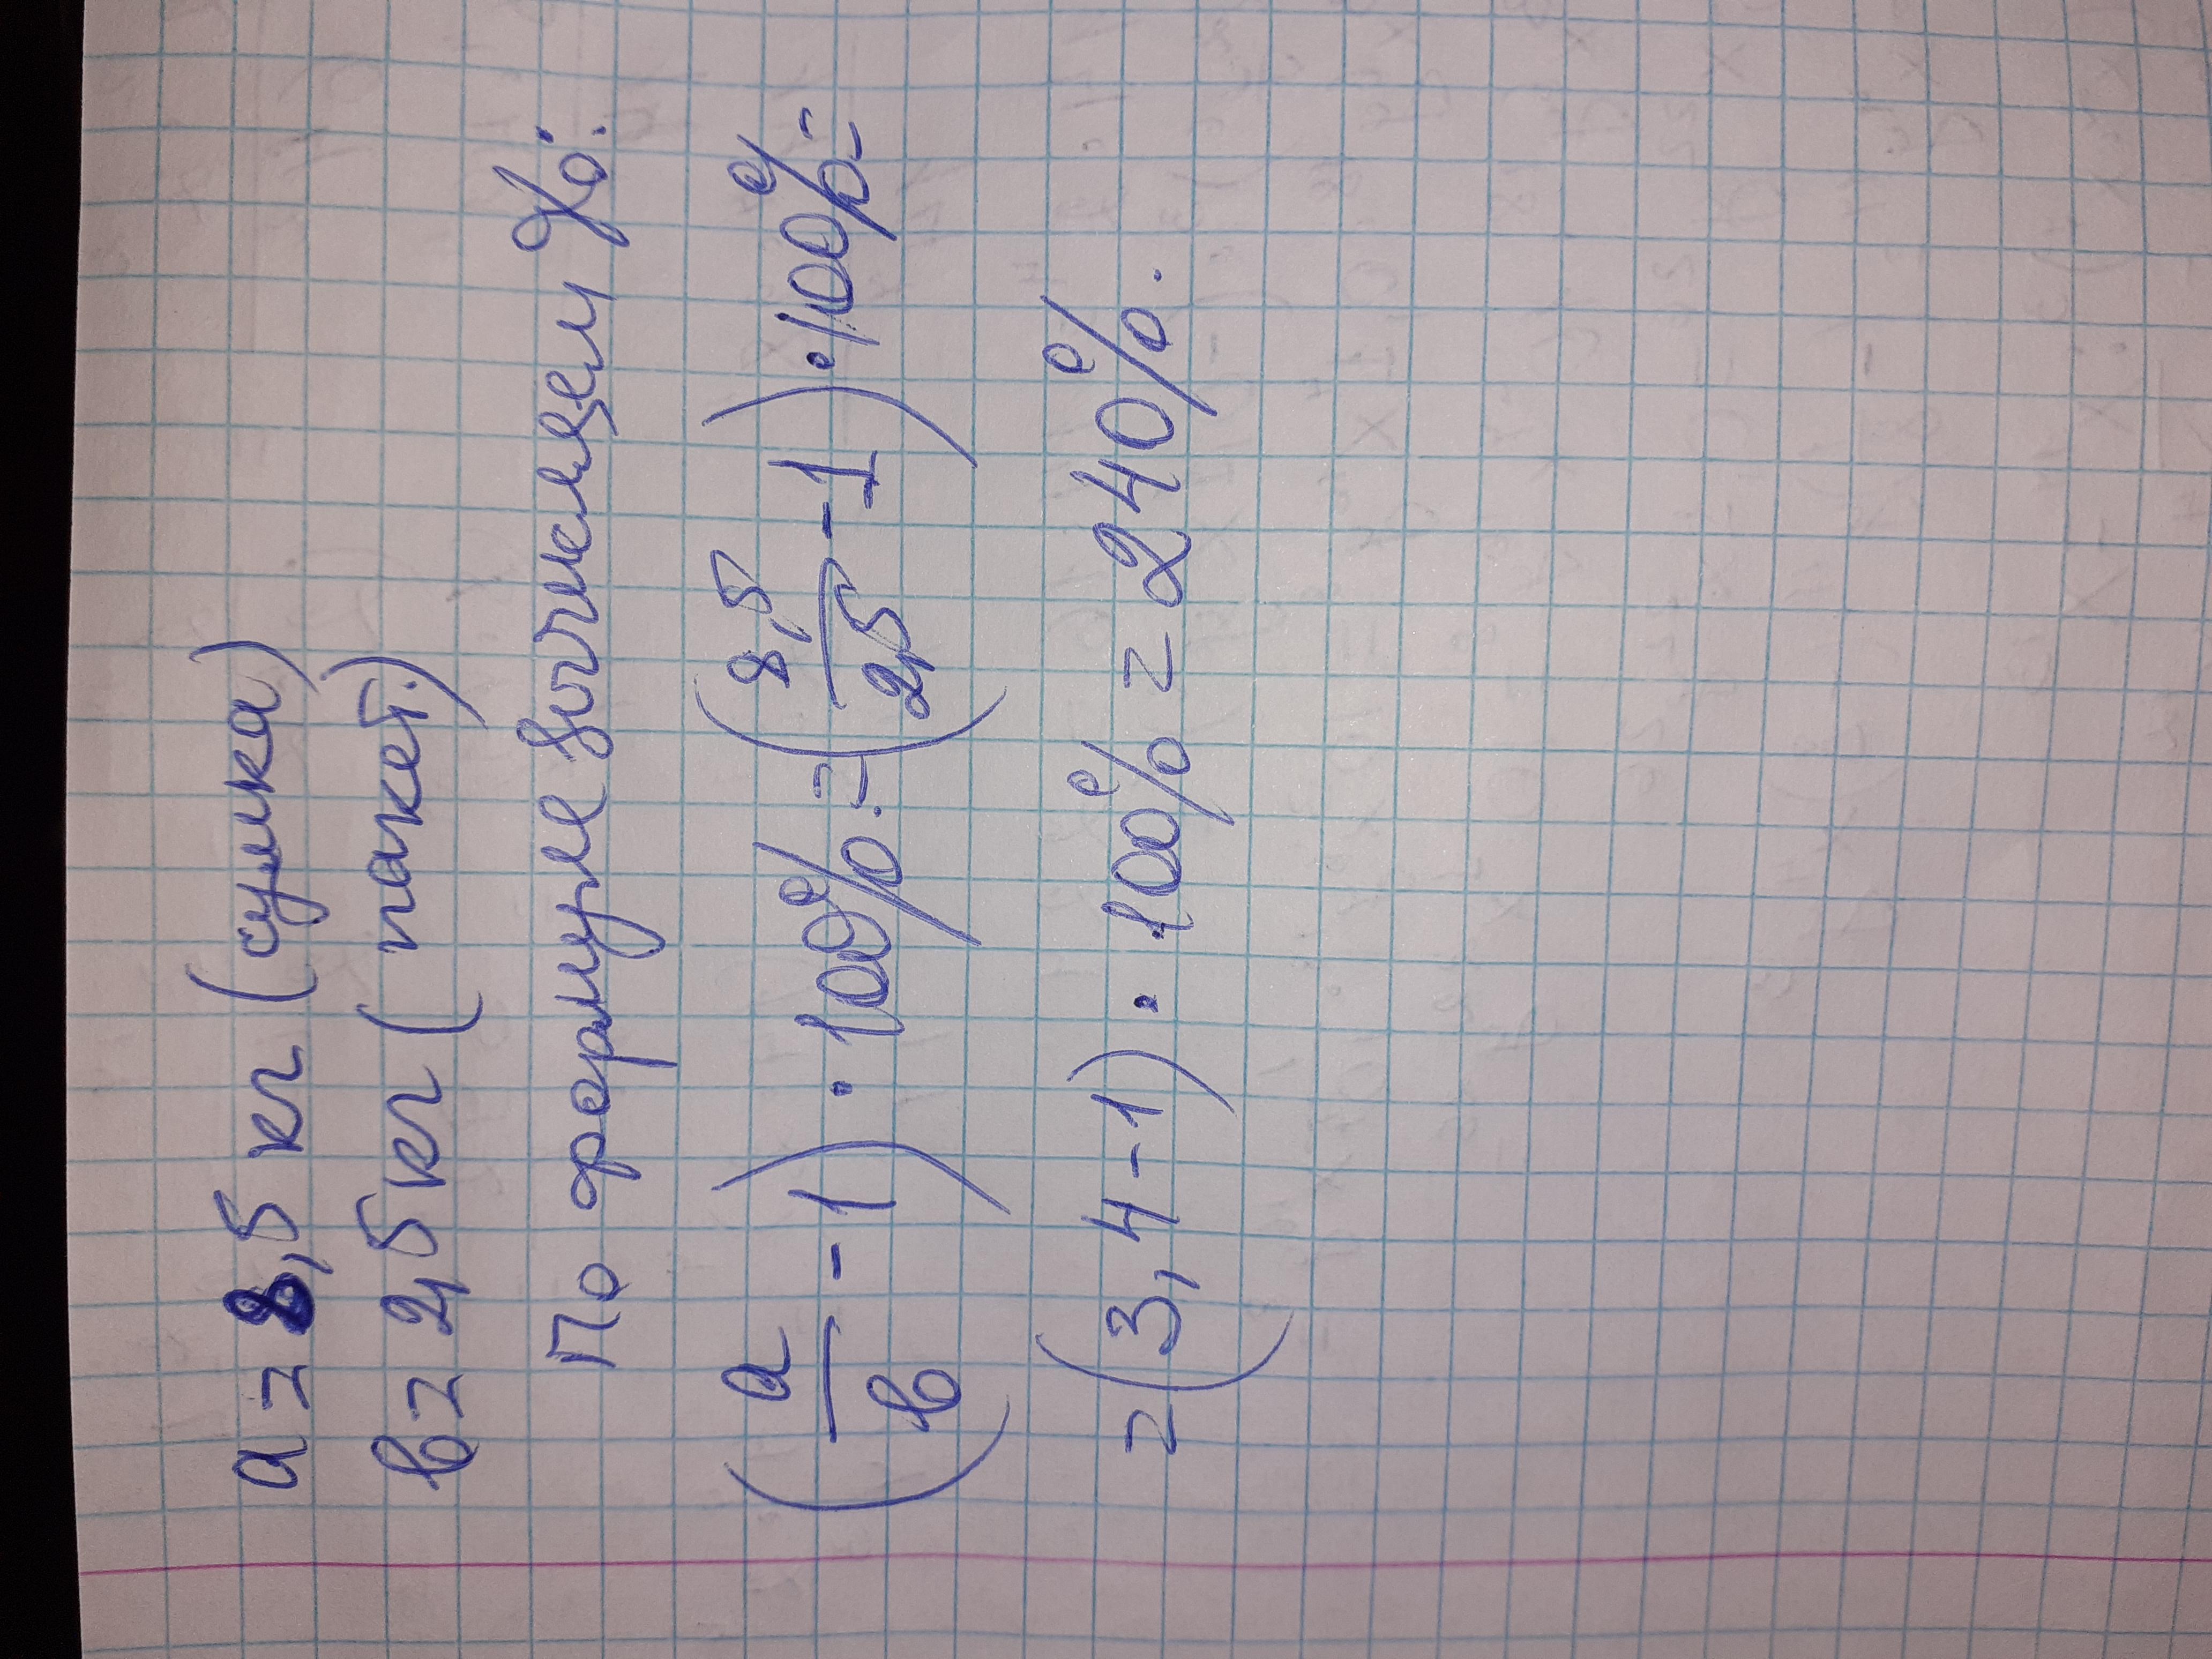 a = 8,5 кг (сумка)
в = 2,5 кг (пакет.)
По формуле вычисляем %:
(a/в - 1) · 100% = (8,5/2,5 - 1) · 100% =
= (3,4 - 1) · 100% = 240%.